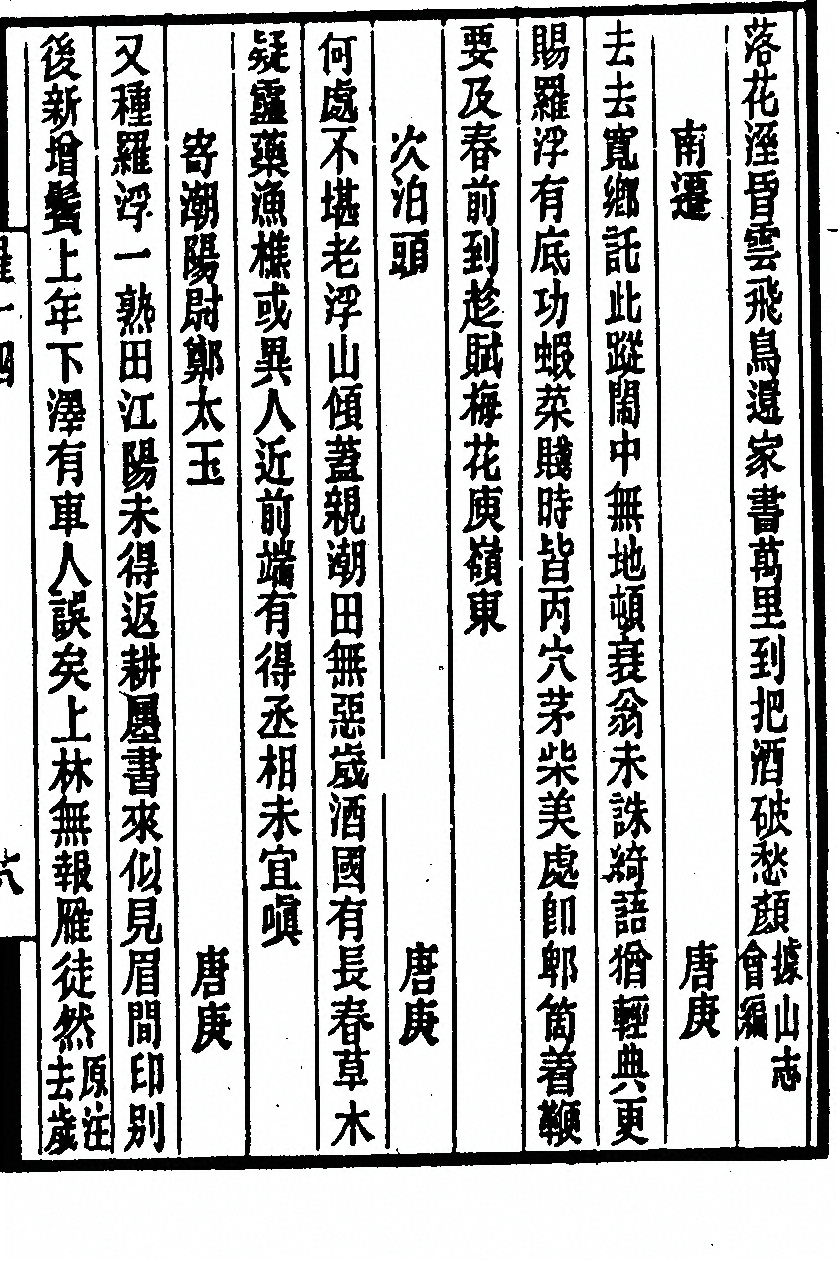 落花溼昏雲飛鳥還家書萬里到把酒破愁顏據山志會編
南遷 唐庚
去去寬鄉託此蹤閩中無地頓衰翁未誅綺語猶輕典更
賜羅浮有底功蝦菜賤時皆丙穴茅柴美處卽郫筩着鞭
要及春前到趁賦梅花庾嶺東
次泊頭 唐庚
何處不堪老浮山傾蓋親潮田無惡歲酒國有長春草木
疑靈藥漁樵或異人近前端有得丞相未宜嗔
寄潮陽尉鄭太玉 唐庚
又種羅浮一熟田江陽未得返耕廛書來似見眉間印別
後新增鬢上年下澤有車人誤矣上林無報雁徒然原注去歲